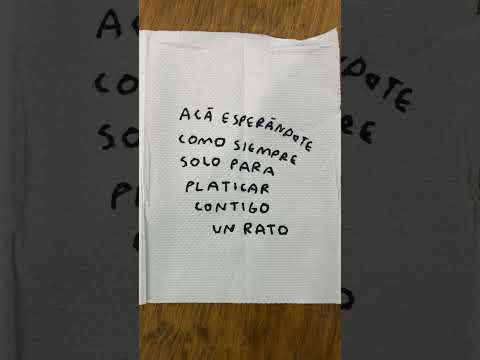 ACÁ ESPERÁNDOTE
COMO SIEMPRE
SOLO PARA
PLATICAR
CONTIGO
UN RATO